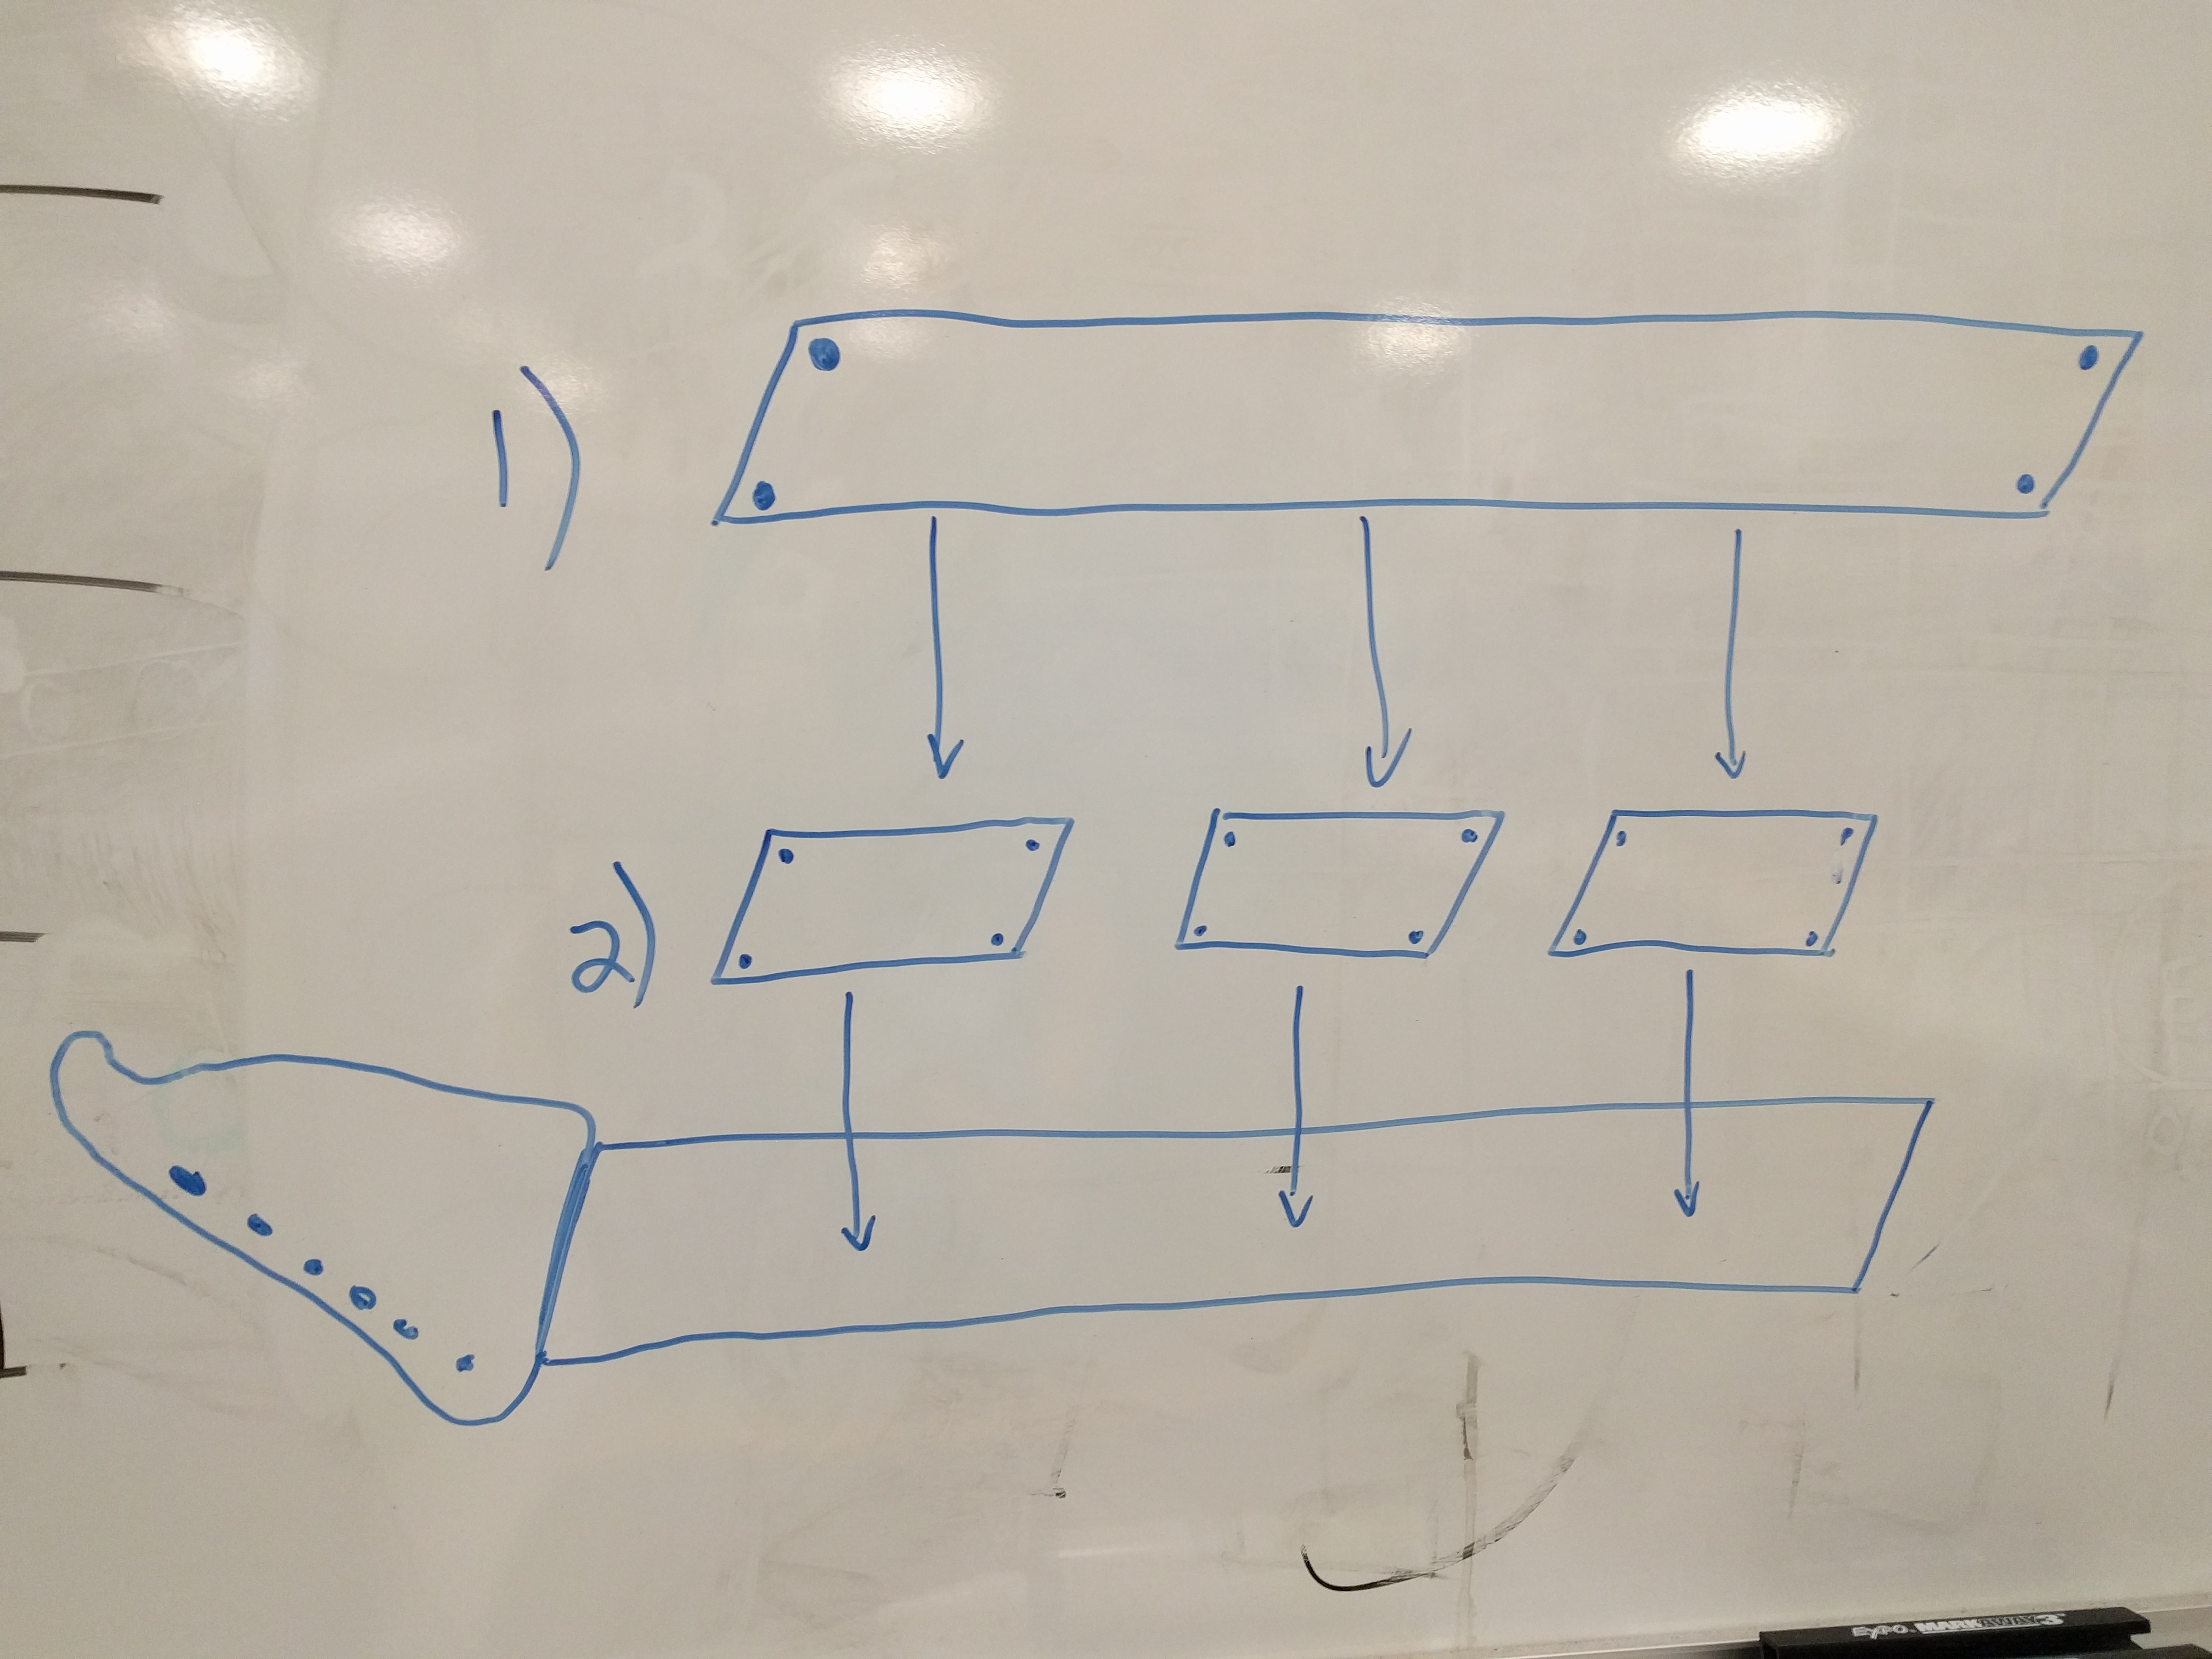 1)
2)
EXPO. MARKAWAY 3